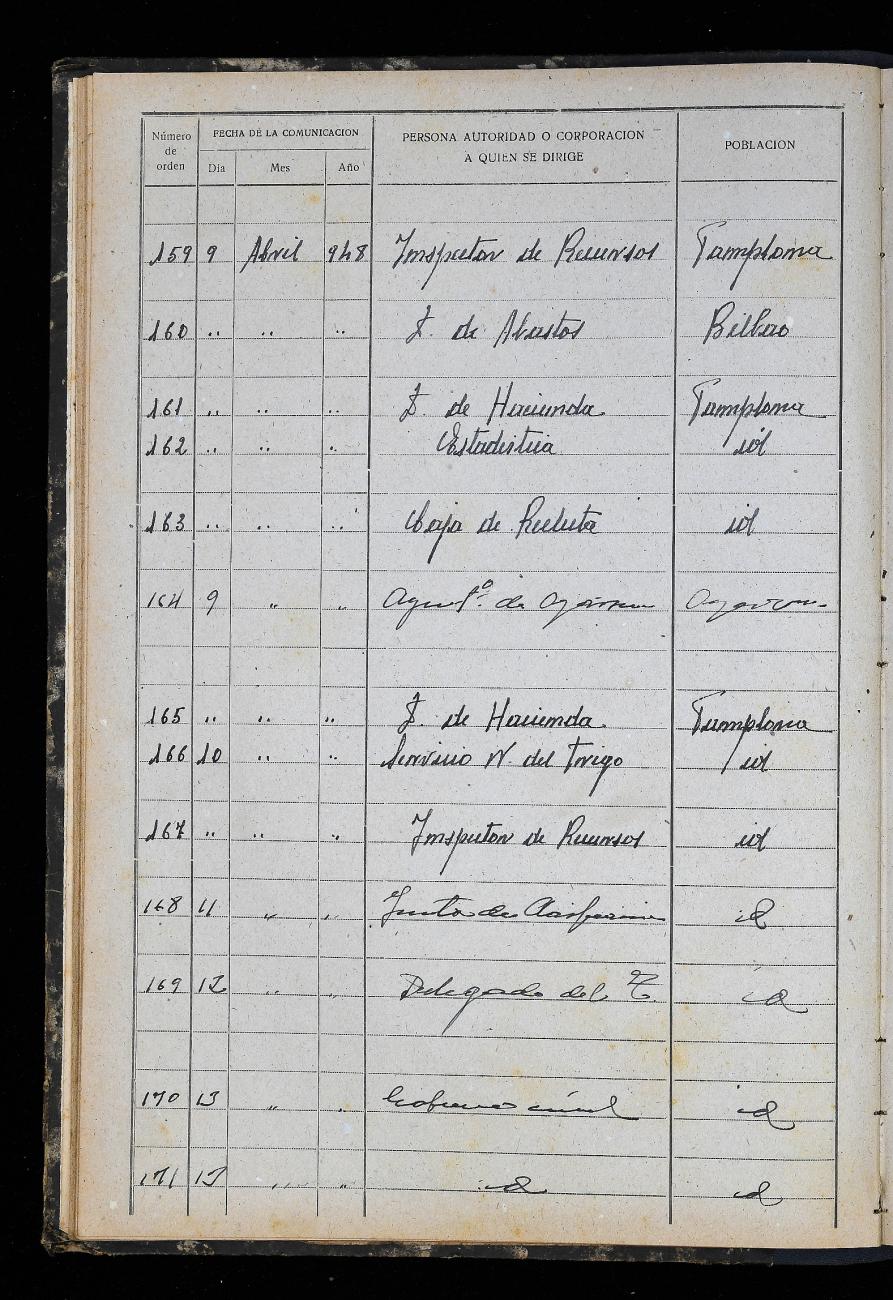 Número de orden FECHA DE LA COMUNICACION PERSONA AUTORIDAD O CORPORACION A QUIEN SE DIRIGE POBLACION
Día Mes Año
159 9 Abril 948 Inspector de Recursos Pamplona
160 " " " I. de Abastos Bilbao
161 " " " I. de Hacienda Pamplona
162 " " " Estadistica id
163 " " " Caja de Recluta id
164 9 " " de
165 " " " I. de Hacienda Pamplona
166 10 " " Servicio N. del Trigo id
167 " " " Inspector de Recursos id
168 11 " " Junta de id
169 12 " " Delegado del T. id
170 13 " " Gobierno civil id
171 13 " " id id